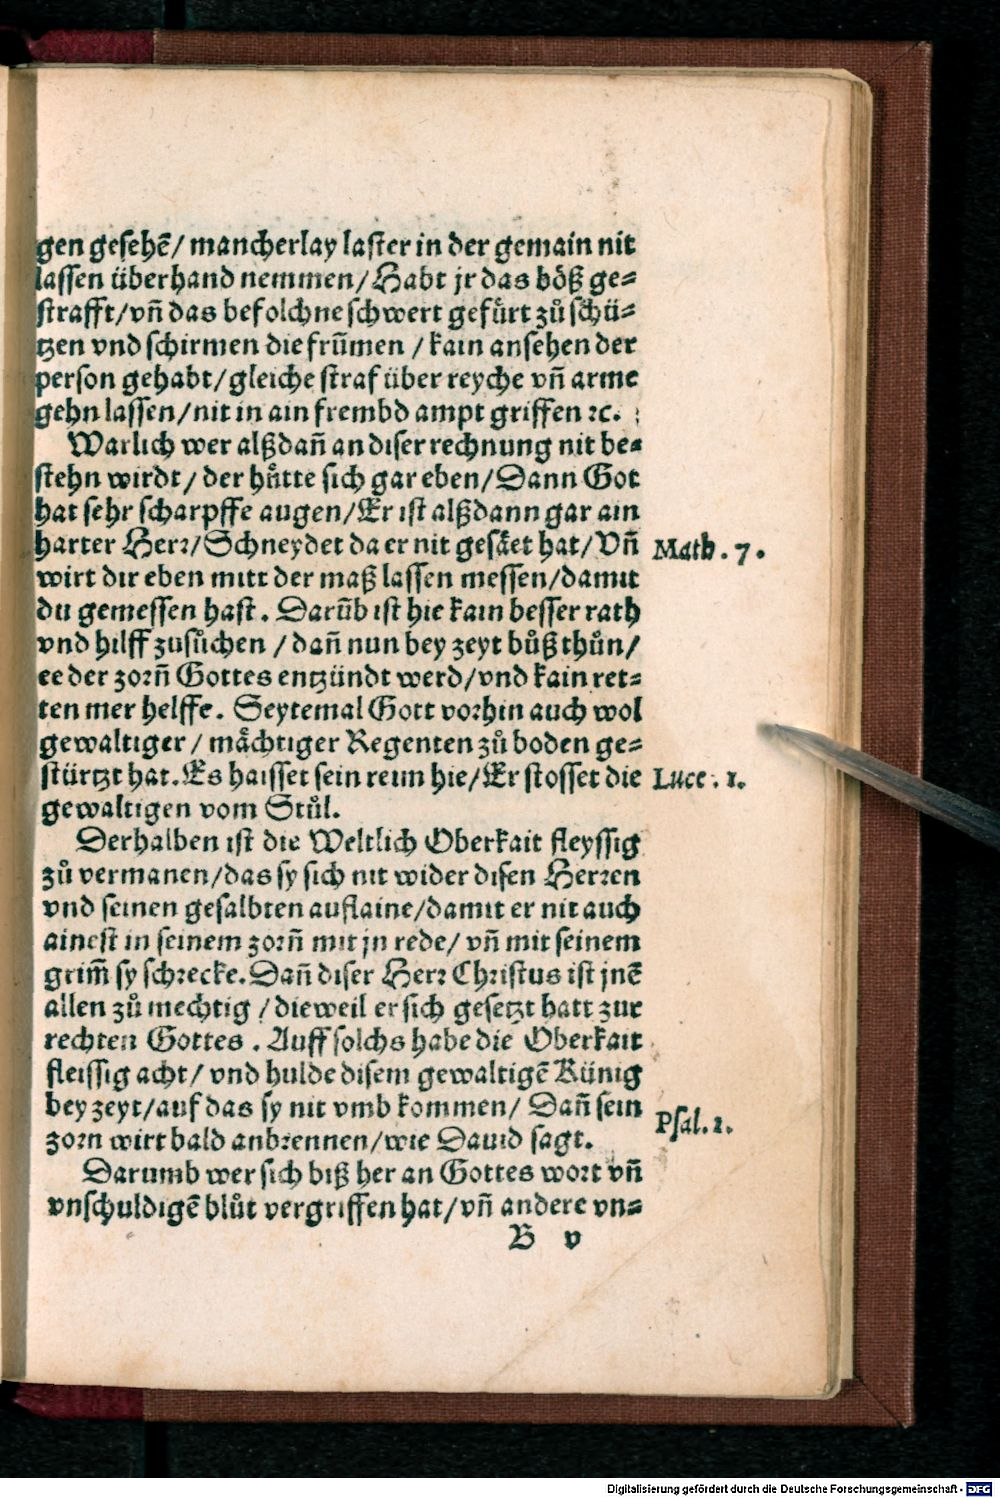 gen gesehē/ mancherlay laster in der gemain nit
lassen überhand nemmen/ Habt jr das böß ge-
strafft/ vñ das befolchne schwert gefürt zů schü-
tzen vnd schirmen die frūmen / kain ansehen der
person gehabt/ gleiche straf über reyche vñ arme
gehn lassen/ nit in ain frembd ampt griffen ꝛc.
Warlich wer alßdañ an diser rechnung nit be-
stehn wirdt/ der hůtte sich gar eben/ Dann Got
hat sehr scharpffe augen/ Er ist alßdann gar ain
harter Herr/ Schneydet da er nit gesäet hat/ Vñ Math. 7.
wirt dir eben mitt der maß lassen messen/ damit
du gemessen hast. Darūb ist hie kain besser rath
vnd hilff zusůchen / dañ nun bey zeyt bůß thůn/
ee der zorñ Gottes entzündt werd/ vnd kain ret-
ten mer helffe. Seytemal Gott vorhin auch wol
gewaltiger / mächtiger Regenten zů boden ge-
stürtzt hat. Es haisset sein reim hie/ Er stosset die Luce. 1.
gewaltigen vom Stůl.
Derhalben ist die Weltlich Oberkait fleyssig
zů vermanen/ das sy sich nit wider disen Herren
vnd seinen gesalbten auflaine/ damit er nit auch
ainest in seinem zorñ mit jn rede/ vñ mit seinem
grim̃ sy schrecke. Dañ diser Herr Christus ist jnē
allen zů mechtig / dieweil er sich gesetzt hatt zur
rechten Gottes. Auff solchs habe die Oberkait
fleissig acht/ vnd hulde disem gewaltigē Künig
bey zeyt/ auf das sy nit vmb kommen/ Dañ sein Psal. 2.
zorn wirt bald anbrennen/ wie Dauid sagt.
Darumb wer sich biß her an Gottes wort vñ
vnschuldigē blůt vergriffen hat/ vñ andere vn-
B v
Digitalisierung gefördert durch die Deutsche Forschungsgemeinschaft - DFG